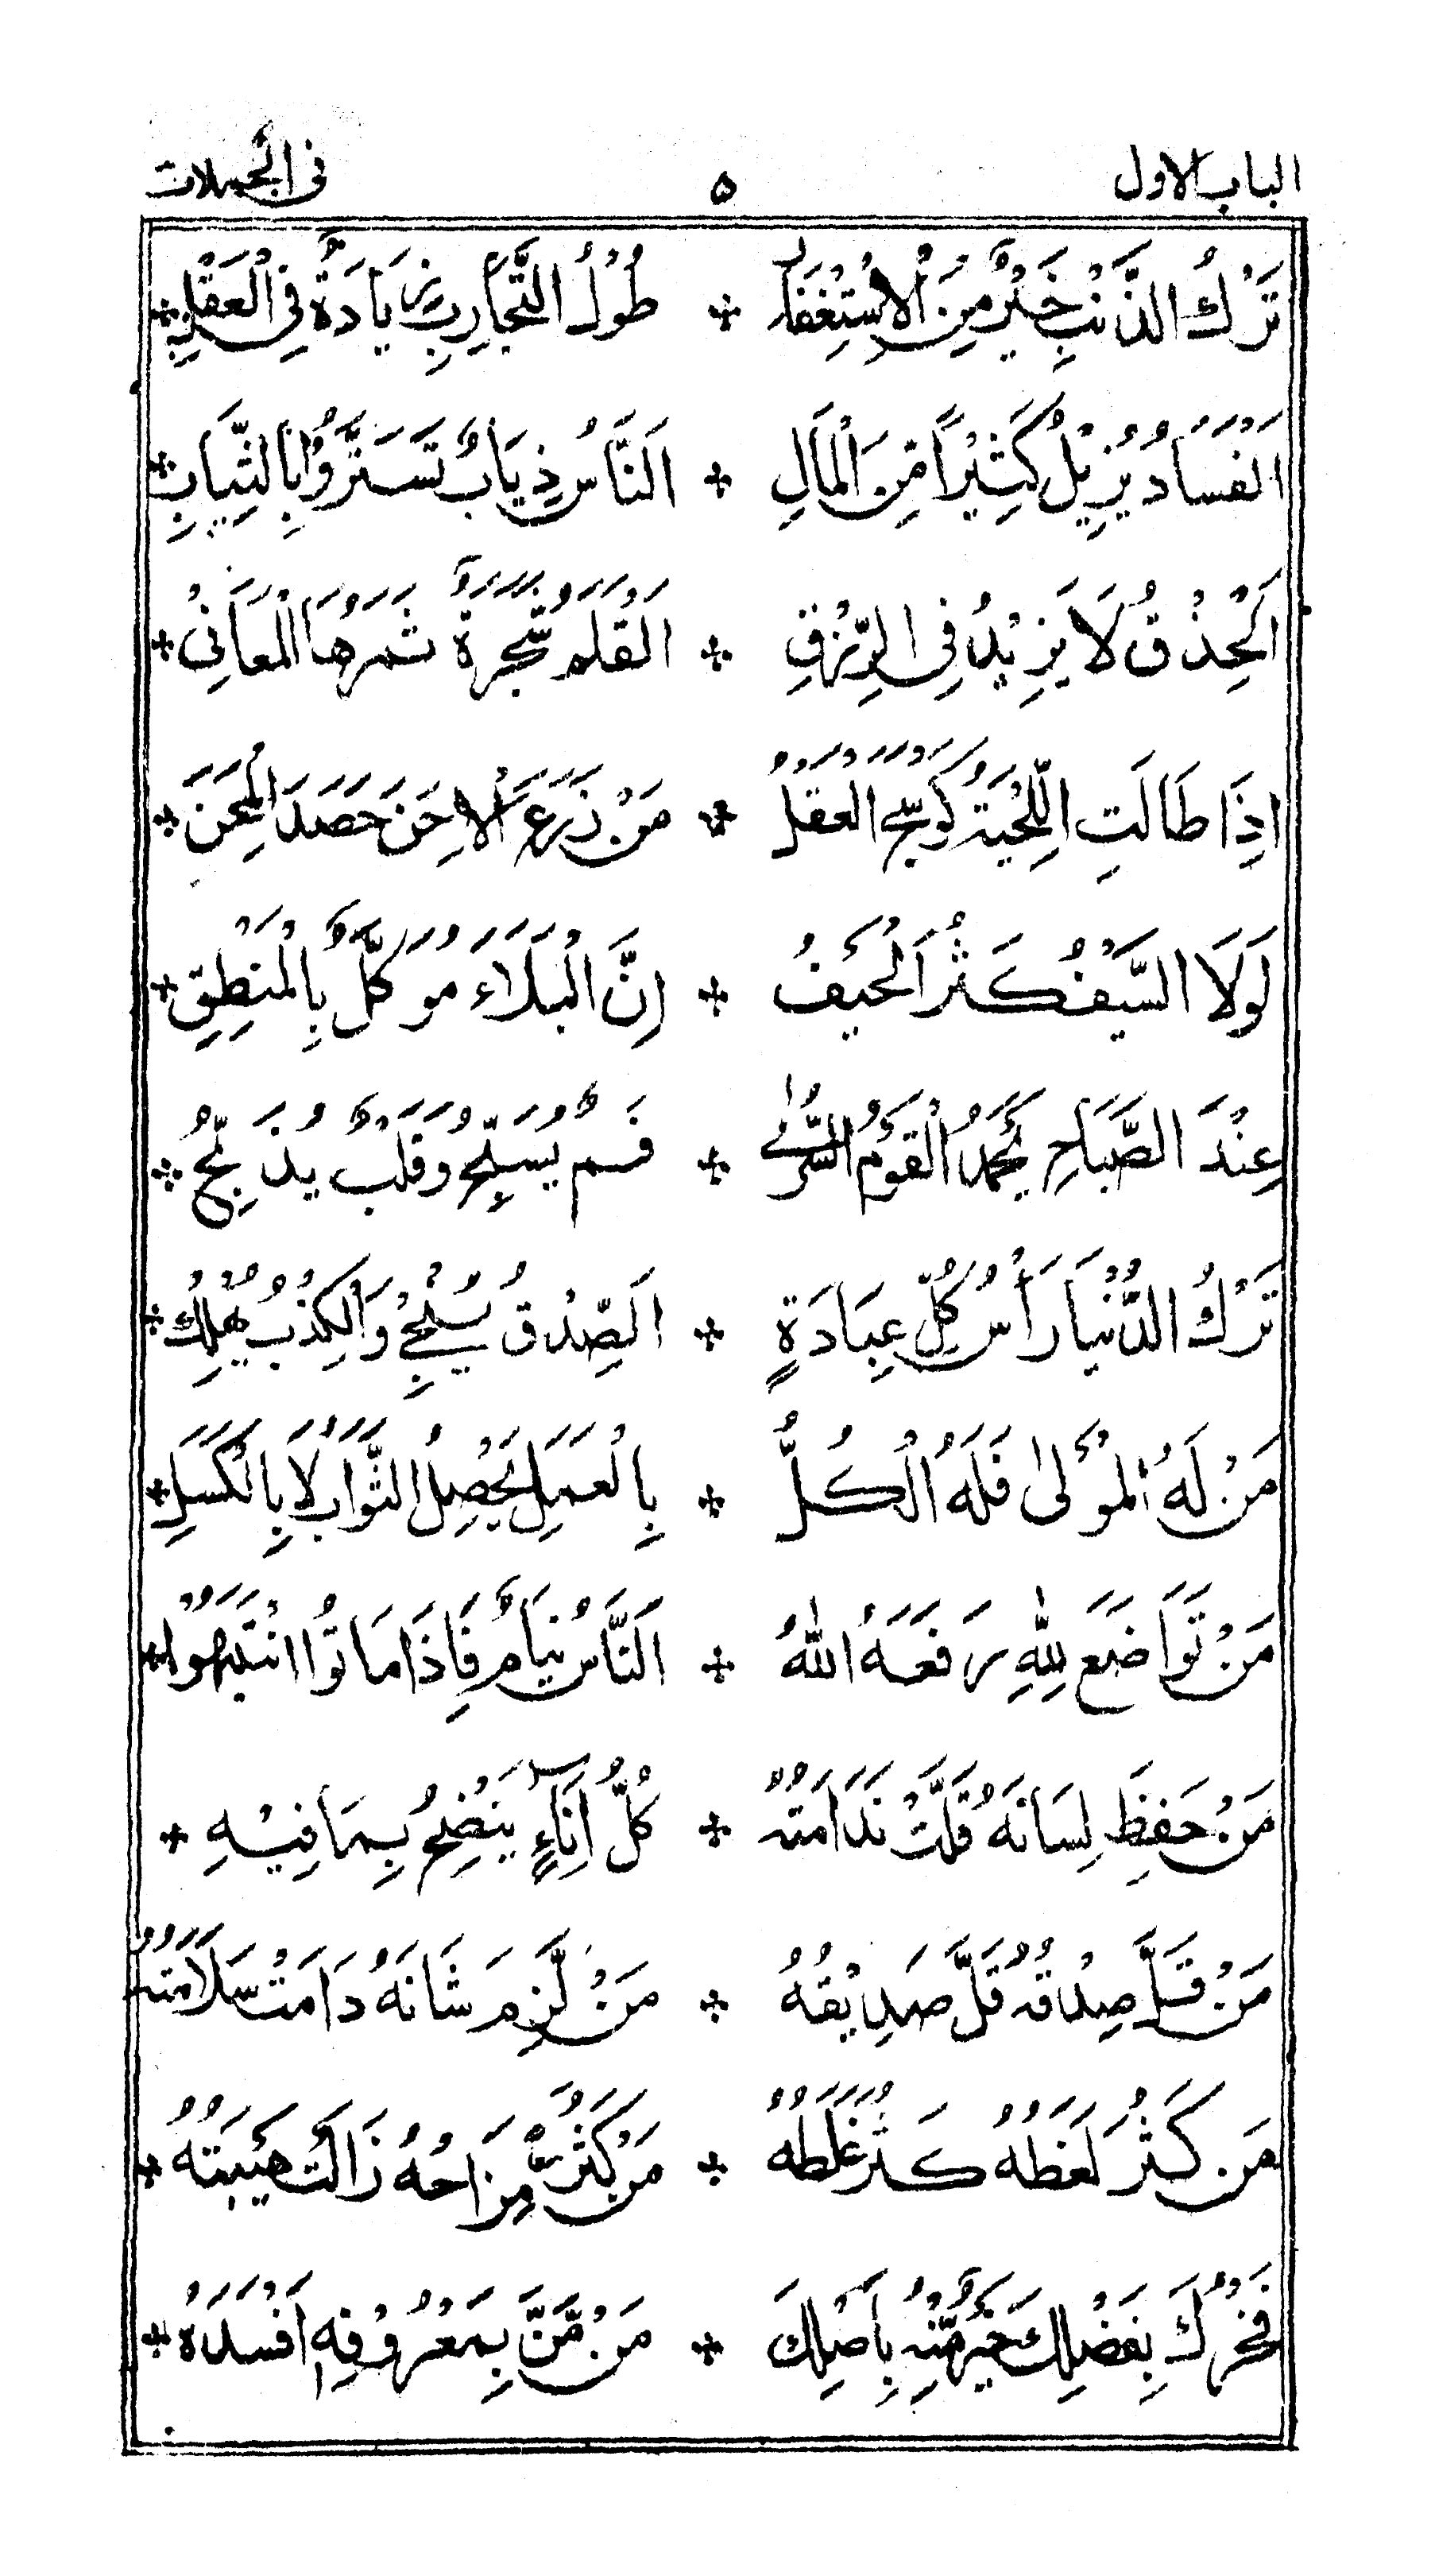 الباب الاول ۵ فى الجملات
تَرْكُ الذَّنْبِ خَيْرٌ مِنَ الْاِسْتِغْفَارِ ✤ طُوْلُ التَّجَارِبِ زِيَادَةٌ فِي الْعَقْلِ ✤
اَلْفَسَادُ يُزِيْلُ كَثِيْرًا مِّنَ الْمَالِ ✤ اَلنَّاسُ ذِيَابٌ تَسَتَّرُوْا بِالثِّيَابِ ✤
اَلْحِذْقُ لَا يَزِيْدُ فِى الرِّزْقِ ✤ اَلْقَلَمُ شَجَرَةٌ ثَمَرُهَا الْمَعَانِيْ ✤
اِذَا طَالَتِ اللِّحْيَةُ كَوْسَجَ الْعَقْلُ ✤ مَنْ زَرَعَ الْاِحَنَ حَصَدَ الْمِحَنَ ✤
لَوْلَا السَّيْفُ كَثُرَ الْحَيْفُ ✤ اِنَّ الْبَلَاءَ مُوَكَّلٌ بِالْمَنْطِقِ ✤
عِنْدَ الصَّبَاحِ يَحْمَدُ الْقَوْمُ السُّرٰى ✤ فَمٌ يُسَبِّحُ وَقَلْبٌ يُذَبِّحُ ✤
تَرْكُ الدُّنْيَا رَأْسُ كُلِّ عِبَادَةٍ ✤ اَلصِّدْقُ يُنْجِيْ وَالْكِذْبُ يُهْلِكُ ✤
مَنْ لَهُ الْمَوْلٰى فَلَهُ الْكُلُّ ✤ بِالْعَمَلِ يَحْصِلُ الثَّوَابُ لَا بِالْكَسَلِ ✤
مَنْ تَوَاضَعَ لِلّٰهِ رَفَعَهُ اللّٰهُ ✤ اَلنَّاسُ نِيَامٌ فَاِذَا مَاتُوا انْتَبَهُوْا ✤
مَنْ حَفِظَ لِسَانَهُ قَلَّتْ نَدَامَتُهُ ✤ كُلُّ اِنَاءٍ يَنْضِحُ بِمَا فِيْهِ ✤
مَنْ قَلَّ صِدْقُهُ قَلَّ صَدِيْقُهُ ✤ مَنْ لَّزِمَ شَانَهُ دَامَتْ سَلَامَتُهُ
مَنْ كَثُرَ لَغَظُهُ كَثُرَ غَلَطُهُ ✤ مَنْ كَثُرَ مِزَاحُهُ زَالَتْ هَيْبَتُهُ ✤
فَخْرُكَ بِفَضْلِكَ خَيْرٌ مِّنْهُ بِاَصْلِكَ ✤ مَنْ مَّنَّ بِمَعْرُوْفِهٖ اَفْسَدَهُ ✤